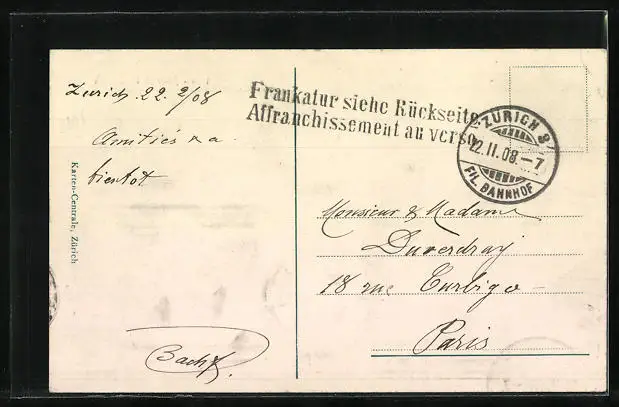 Zurich 22 2/08
Amitiés & a
bientot
Karten-Centrale, Zürich
Frankatur siehe Rückseite.
Affranchissement au verso.
ZÜRICH 8
22.II.08.-7
FIL. BAHNHOF
Monsieur & Madame
Duverdray
18 rue Turbigo
Paris